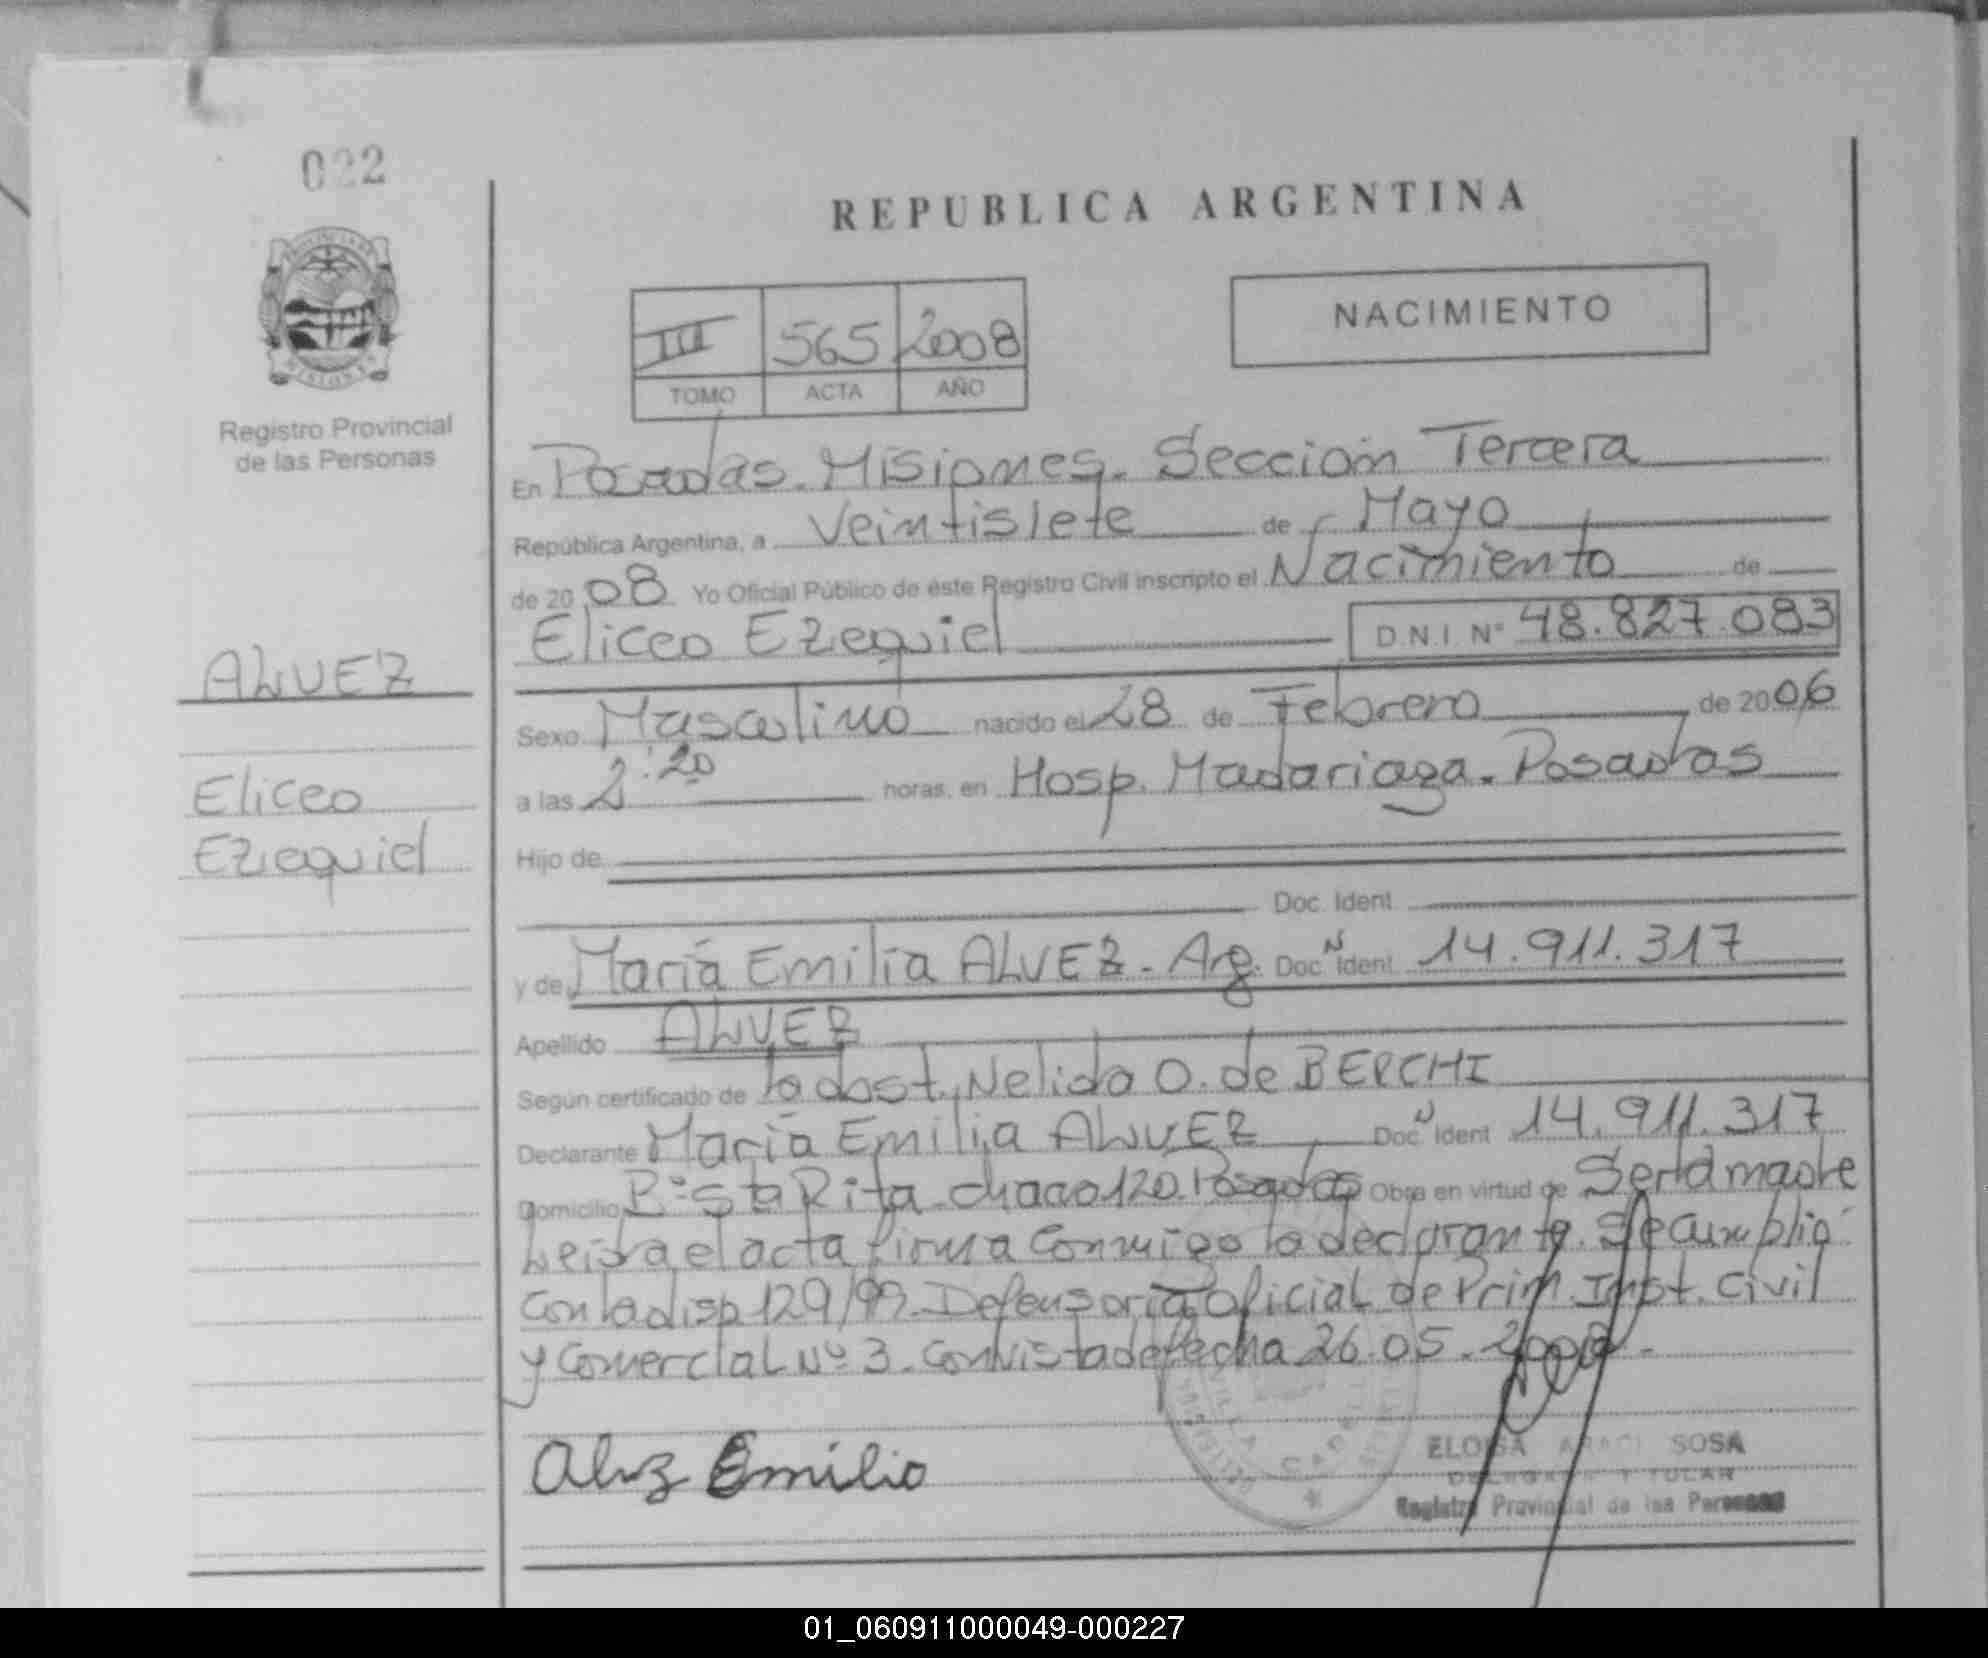 022
REPUBLICA ARGENTINA
III 565 2008
TOMO ACTA AÑO
NACIMIENTO
Registro Provincial
de las Personas
En Posadas. Misiones. Sección Tercera
República Argentina, a Veintisiete de Mayo
de 2008 Yo Oficial Público de éste Registro Civil inscripto el Nacimiento de
Eliceo Ezequiel D.N.I. Nº 48.827.083
ALVEZ
Eliceo
Ezequiel
Sexo Masculino nacido el 28 de Febrero de 2006
a las 2:20 horas, en Hosp. Madariaga. Posadas
Hijo de
Doc. Ident.
y de María Emilia ALVEZ - Arg. Doc. N Ident. 14.911.317
Apellido ALVEZ
Según certificado de la obst. Nelida O. de BERCHI
Declarante María Emilia ALVEZ Doc. N Ident 14.911.317
Domicilio Bº Sta Rita - chaco 120. Posadas Obra en virtud de Ser la madre
Leída el acta firma conmigo la declarante. Se cumplio
con la disp 129/99. Defensoria Oficial de Prim. Inst. Civil
y Comercial Nº 3. Con vista de fecha 26.05.2008.-
Alvz Emilia
ELOISA ARACI SOSA
DELEGADA TITULAR
Registro Provincial de las Personas
01_060911000049-000227